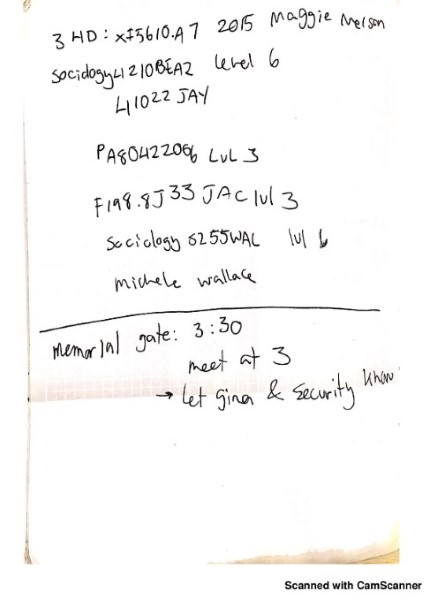 3 HD: x75610.A7 2015 Maggie Nelson
Sociology 41210BEA2 Level 6
41022 JAY
PA80422006 LvL 3
F198.8J33 JAC lvl 3
Sociology 6255WAL lvl 6
Michele Wallace
Memorial gate: 3:30
meet at 3
→ Let gina & Security know
Scanned with CamScanner